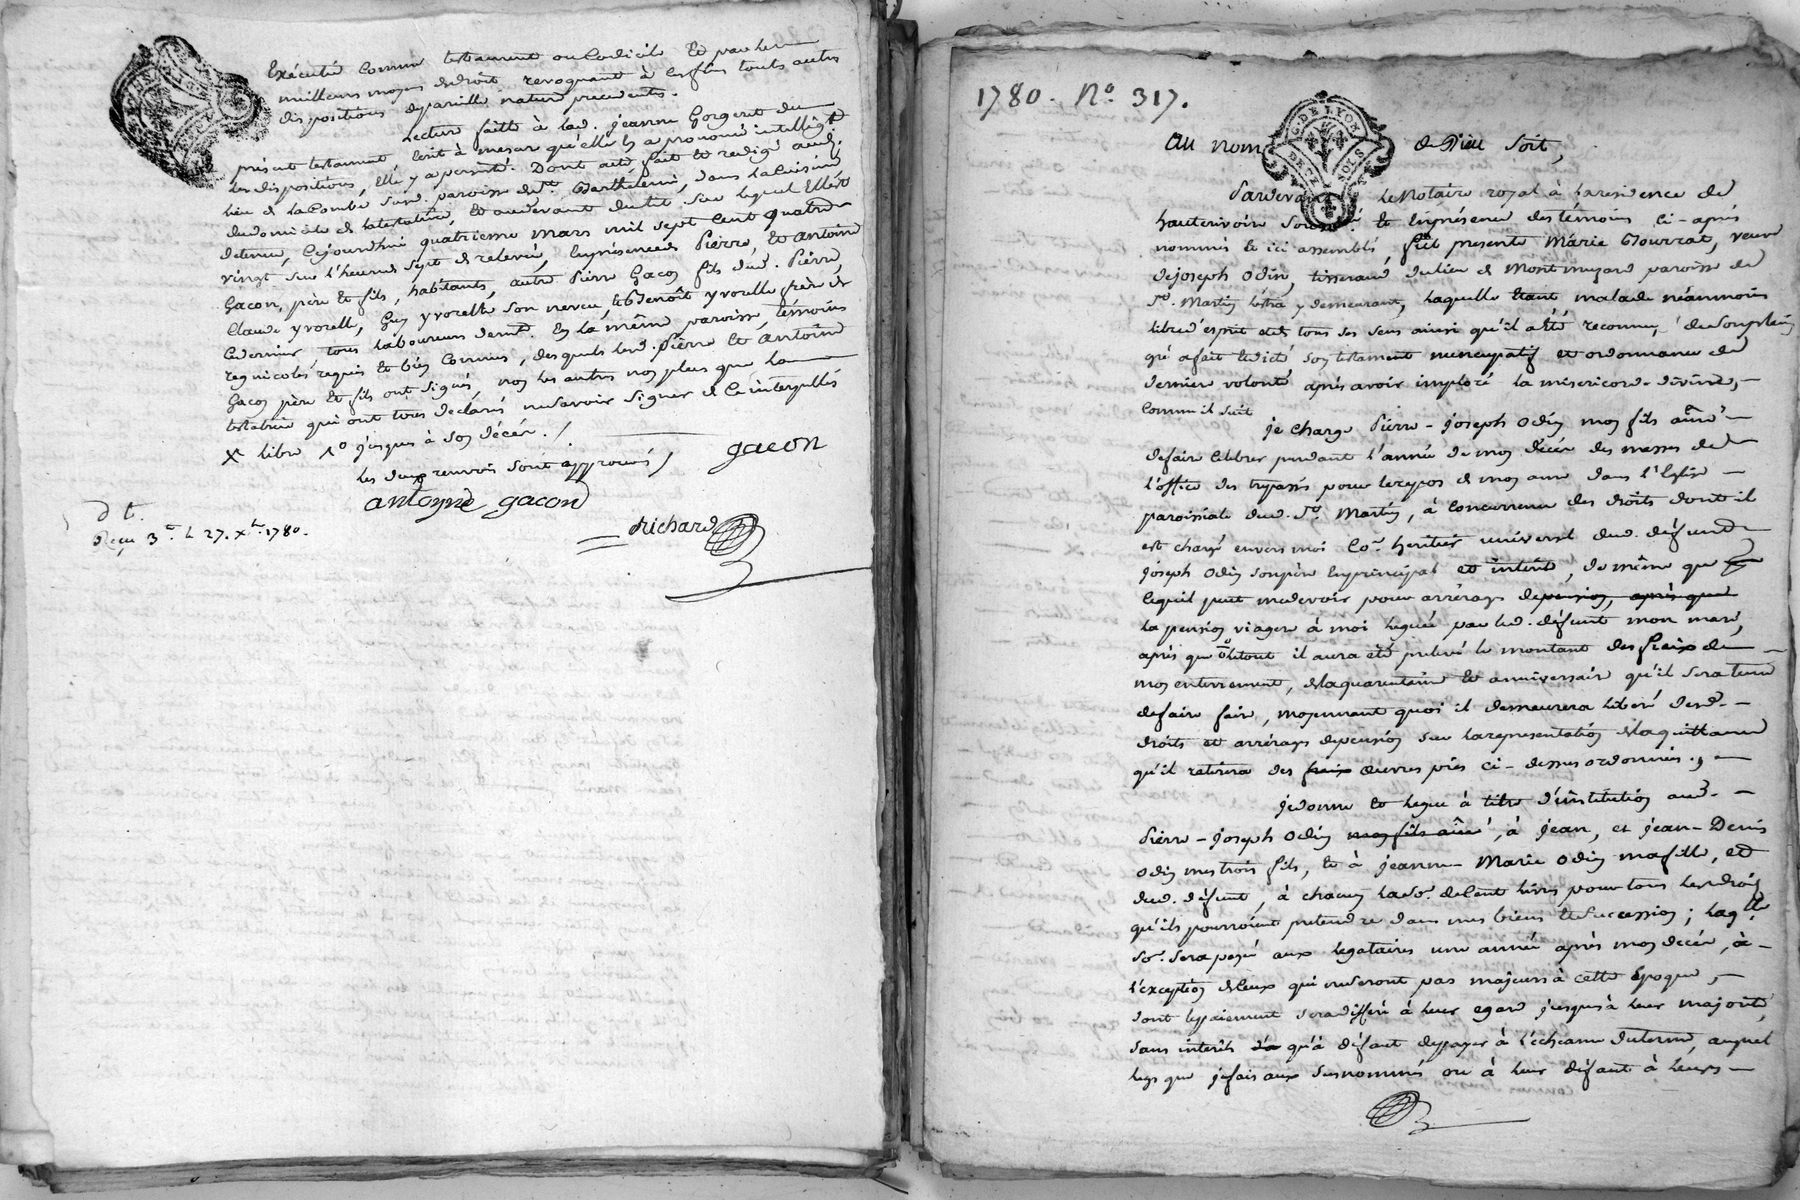 Exécuté comme testament ou Codicile et par les
meilleurs moyens de droit revoquant à ces fins touts autres
dispositions de pareille nature precedentes.
Lecture faitte à lad. jeanne Gorgeret du
présent testament, écrit à mesure qu'elle en a prononcé intelligt
les dispositions, elle y a persisté. Dont acte, fait et redigé aud.
lieu de la Combe sur d. paroisse de St. Barthelemi, dans la cuisine
du domicile de la testatrice, et au devant du lit sur lequel elle est
detenue, Cejourdhui quatrieme mars mil sept cent quatre
vingt sur l'heure de sept de relevée, en présence de Pierre, et antoine
Gacon, père et fils, habitants, autre Pierre Gacon fils dud. Pierre,
Claude yvorelle, Guy yvorelle son neveu, et Benoît yvorelle frère de
ce dernier tous laboureurs demt. en la même paroisse, témoins
regnicoles requis et bien connus, desquels lesd. Pierre et antoine
Gacon père et fils ont signé, non les autres non plus que la
testatrice qui ont tous declarés ne savoir signer de ce interpellés
x libre 1o jusques à son décés. /.
les deux renvois sont approuvés /
gacon
antoyne gacond
Richard
d t.
Reçu 3 # le 27. xbre. 1780.
1780. No. 317.
G. DE LYON
DEUX SOLS
au nom de Dieu soit,
Pardevant le Notaire royal à la residence de
hauterivoire soussé. et en présence des témoins ci-après
nommés et ici assemblés, fut presente Márie Bourrat, veuve
de joseph Odin, tisserand du lieu de Montmezard paroisse de
St. Martin lestra y demeurant, laquelle etant malade néanmoins
libre d'esprit et de tous ses sens ainsi qu'il a été reconnu, de son plein
gré a fait et dicté son testament nuncupatif et ordonnance de
derniere volonté après avoir imploré la misericorde divine, -
Comme il suit
je charge Pierre-joseph Odin mon fils ainé -
de faire célébrer pendant l'année de mon décés des messes de
l'office des trépassés pour le repos de mon ame dans l'Eglise -
paroissiale dud. St. Martin, à concurrence des droits dont il
est chargé envers moi Co. heritier universel dud. défunt
joseph Odin son père en principal et intérêt, de même que
ce qu'il peut me devoir pour arrérages de pension, après que
la pension viagere à moi leguée par led. défunt mon mari,
après que du tout il aura été prélevé le montant des fraix de -
mon enterrement, de la quarantaine et anniversaire qu'il sera tenu
de faire faire, moyennant quoi il demeurera libéré desd. -
droits et arrérages de pension sur la representation de la quittance
qu'il retirera des fraix œuvres pies ci-dessus ordonnées., -
je donne et legue à titre d'institution aud. -
Pierre-joseph Odin mon fils ainé, à jean, et jean-Denis
Odin mes trois fils, et à jeanne-Marie Odin ma fille, et
dud. défunt, à chacun la so. de cent livres pour tous les droits
qu'ils pourroient pretendre dans mes biens et succession; laqlle
so. sera payée aux legataires une année après mon decés, à -
l'exception de ceux qui ne seront pas majeurs à cette époque, -
dont le paiement sera differé à leur egard jusques à leur majorité,
sans interêts qu'à défaut de payer à l'écheance du terme, auquel
legs que je fais aux susnommés ou à leur défaut à leurs -